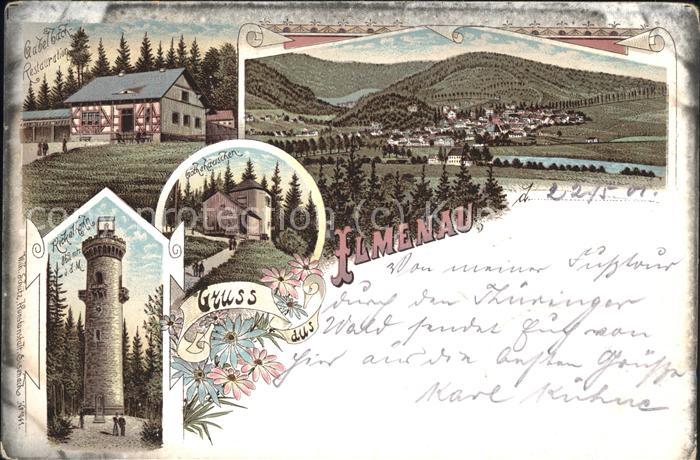 Gabelbach
Restauration
Goethehäuschen
Kickelhahn
861 mtr.
ü. d. M.
Gruss
aus
ILMENAU,
d. 22/5 01.
Von meiner Fußtour
durch den Thüringer
Wald sendet Euch von
hier aus die besten Grüße
Karl Kühne
Wilh. Schütz, Kunstanstalt, Eisenach.